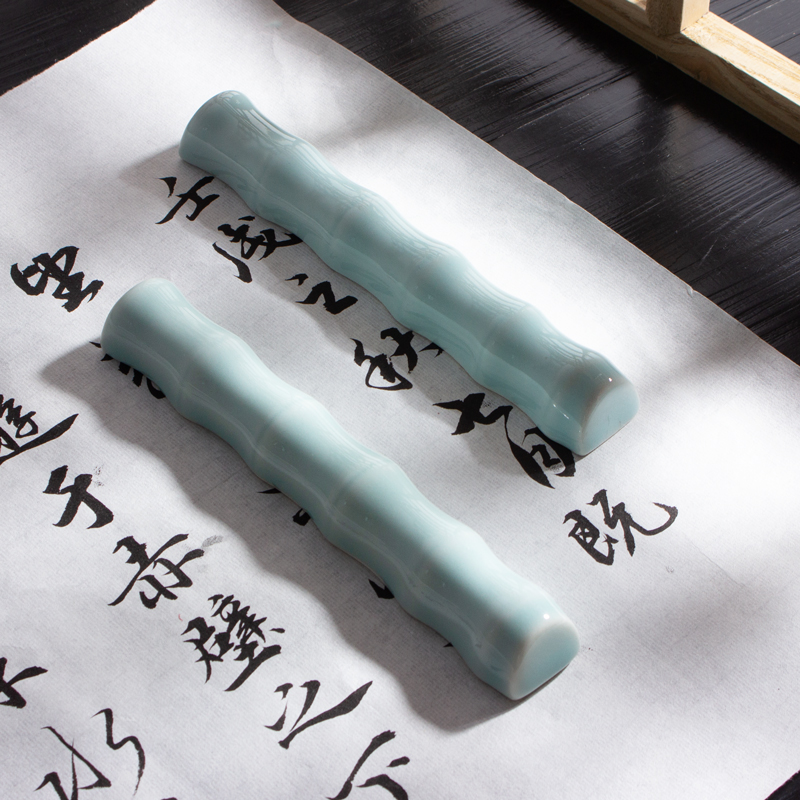 壬戌之秋七月既
望
遊于赤壁之下
水